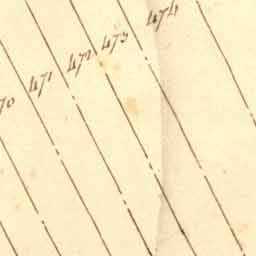 70
471
472
473
474